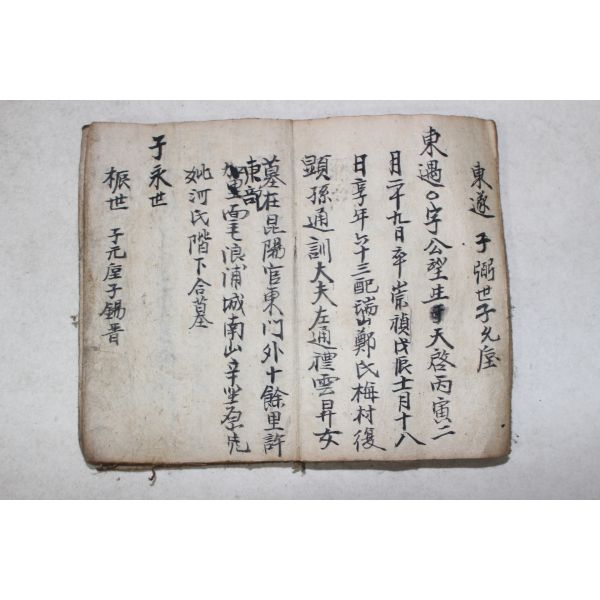 東遂 子 弼世 子 元座
東遇○字公望生 天啓丙寅二
月二十九日卒崇禎戊辰十一月十八
日享年六十三配瑞山鄭氏梅村復
顯孫通訓大夫左通禮雲昇女
墓在昆陽官東門外十餘里許
東部 面毛浪浦城南山辛坐原先
妣河氏階下合墓
子永世
振世 子元座子錫晋